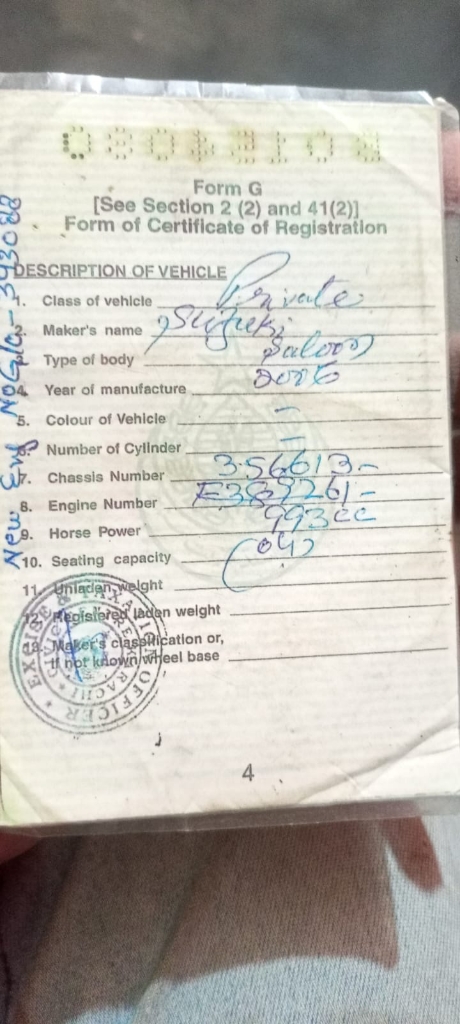 Form G
[See Section 2 (2) and 41(2)]
Form of Certificate of Registration
DESCRIPTION OF VEHICLE
1. Class of vehicle Private
2. Maker's name Suzuki
3. Type of body Saloon
4. Year of manufacture 2006
5. Colour of Vehicle -
6. Number of Cylinder -
7. Chassis Number 356613-
8. Engine Number
9. Horse Power 993cc
10. Seating capacity (04)
11. Unladen weight
12. Registered laden weight
13. Maker's classification or,
If not known wheel base
EXCISE & TAXATION OFFICER
KARACHI
4
New Eng No G10-